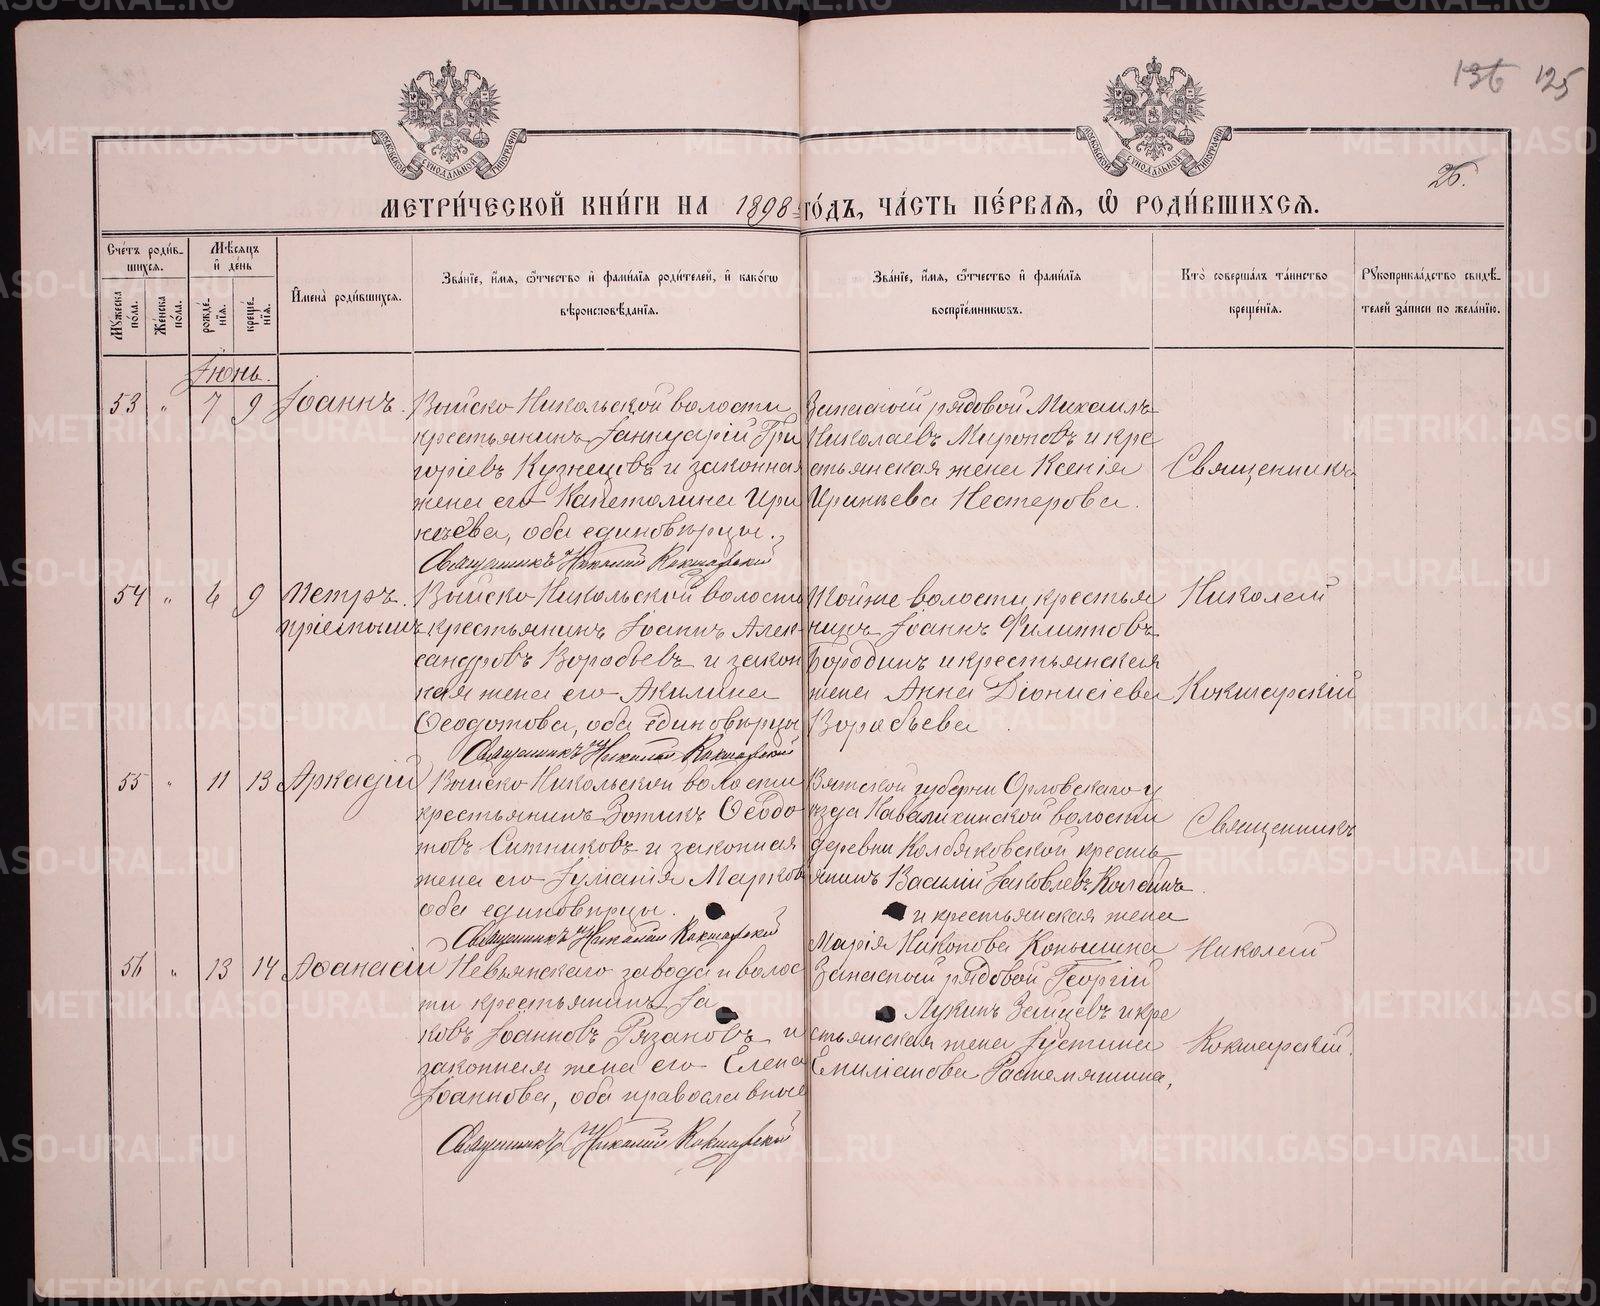 136 125
26.
МЕТРИ́ЧЕСКОЙ КНИ́ГИ НА 1898 ГО́ДЪ, ЧА́СТЬ ПЕ́РВАЯ, Ѡ РОДИ́ВШИХСЯ.
Сче́тъ роди́вшихся.
Му́жеска по́ла.
Же́нска по́ла.
Мѣ́сяцъ и҆ де́нь
рожде́нїя.
креще́нїя.
И҆мена̀ роди́вшихся.
Зва́нїе, и҆́мя, ѻ҆́тчество и҆ фами́лїя роди́телей, и҆ како́гѡ
вѣроисповѣ́данїя.
Зва́нїе, и҆́мя, ѻ҆́тчество и҆ фами́лїя
воспрїе́мникѡвъ.
Кто̀ соверша́лъ та́инство
креще́нїя.
Рꙋкоприкла́дство свидѣ́-
телей за́писи по жела́нїю.
Іюнь.
53 " 7 9 Іоаннъ.
Выйско-Никольской волости
крестьянинъ Іаннуарій Гри
горіевъ Кузнецовъ и законная
жена его Капетолина Ири
неева, оба единовѣрцы.
Священникъ Николай Кокшарскій
Запасной рядовой Михаилъ
Николаевъ Мироновъ и кре
стьянская жена Ксенія
Иринеева Нестерова.
Священникъ
54 " 6 9 Петръ.
пріемышъ
Выйско-Никольской волости
крестьянинъ Іоаннъ Алек-
сандровъ Воробьевъ и закон
ная жена его Акилина
Ѳеодотова, оба единовѣрцы
Священникъ Николай Кокшарскій
Той же волости крестья
нинъ Іоаннъ Филиповъ
Бородинъ и крестьянская
жена Анна Діонисіева
Воробьева.
Николай
Кокшарскій
55 " 11 13 Аркадій
Выйско-Никольской волости
крестьянинъ Зотикъ Ѳеодо-
товъ Ситниковъ и законная
жена его Іуліанія Марков
оба единовѣрцы.
Священникъ Николай Кокшарскій
Вятской губерніи Орловскаго у
ѣзда Кавалихинской волости
деревни Колбяковской кресть
янинъ Василій Іаковлевъ Колбинъ
и крестьянская жена
Марія Никонова Коньшина
Священникъ
Николай
56 " 13 14 Аѳанасій
Невьянскаго завода и волос
ти крестьянинъ Іа
ковъ Іоанновъ Рязановъ и
законная жена его Елена
Іоаннова, оба православные
Священникъ Николай Кокшарскій
Запасной рядовой Георгій
Лукинъ Зайцевъ и кре
стьянская жена Іустина
Емиліанова Растемяшина,
Кокшарскій.
METRIKI.GASO-URAL.RU